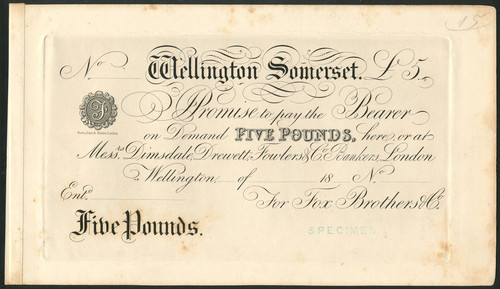 15
No Wellington Somerset. £5.
F
I Promise to pay the Bearer
on Demand FIVE POUNDS, here or at
Messrs. Dimsdale, Drewett, Fowlers & Co. Bankers, London
Wellington, of 18 No
Entd.
For Fox Brothers & Co.
Five Pounds.
SPECIMEN